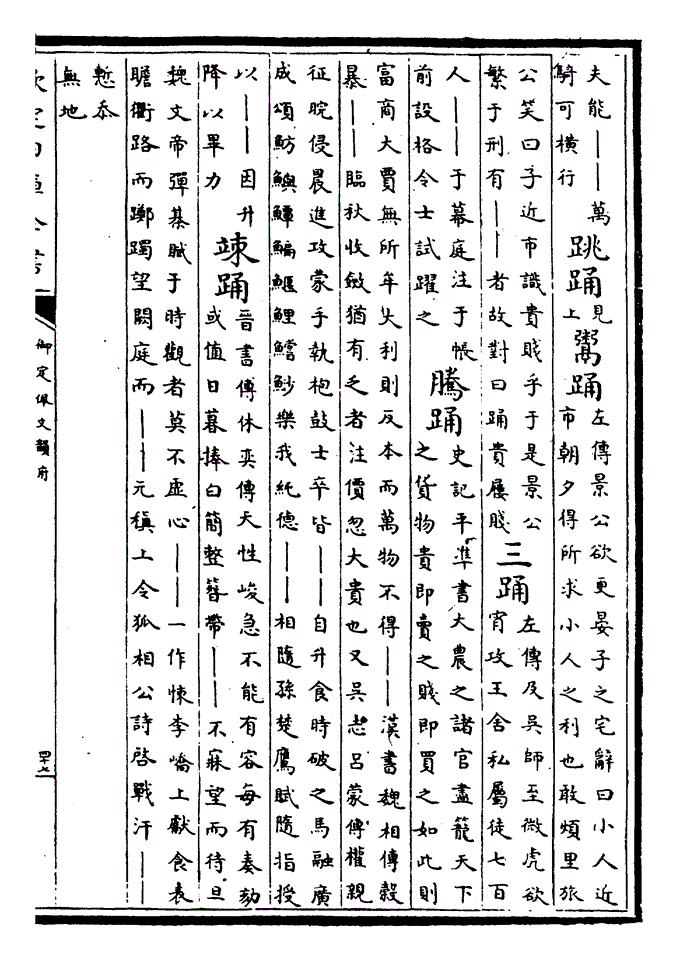 夫能——萬
騎可橫行
跳踊
見
上
鬻踊
左傳景公欲更晏子之宅辭曰小人近
市朝夕得所求小人之利也敢煩里旅
公笑曰子近市識貴賤乎于是景公
繁于刑有——者故對曰踊貴屨賤
三踊
左傳及吳師至微虎欲
宵攻王舍私屬徒七百
人——于幕庭注于帳
前設格令士試躍之
騰踊
史記平準書大農之諸官盡籠天下
之貨物貴即賣之賤即買之如此則
富商大賈無所牟大利則反本而萬物不得——漢書魏相傳穀
暴——臨秋收斂猶有乏者注價忽大貴也又吳志呂蒙傳權親
征晥侵晨進攻蒙手執枹鼓士卒皆——自升食時破之馬融廣
成頌魴鱮鱏鯿鰋鯉鱨魦樂我純德——相隨孫楚鷹賦隨指授
以——因升
降以畢力
竦踊
晉書傅休奕傳天性峻急不能有容每有奏劾
或值日暮捧白簡整簪帶——不寐望而待旦
魏文帝彈棊賦于時觀者莫不虛心——一作悚李嶠上獻食表
瞻衢路而躑躅望闕庭而——元稹上令狐相公詩啓戰汗——
慙忝
無地
欽定四庫全書
御定佩文韻府
四十七